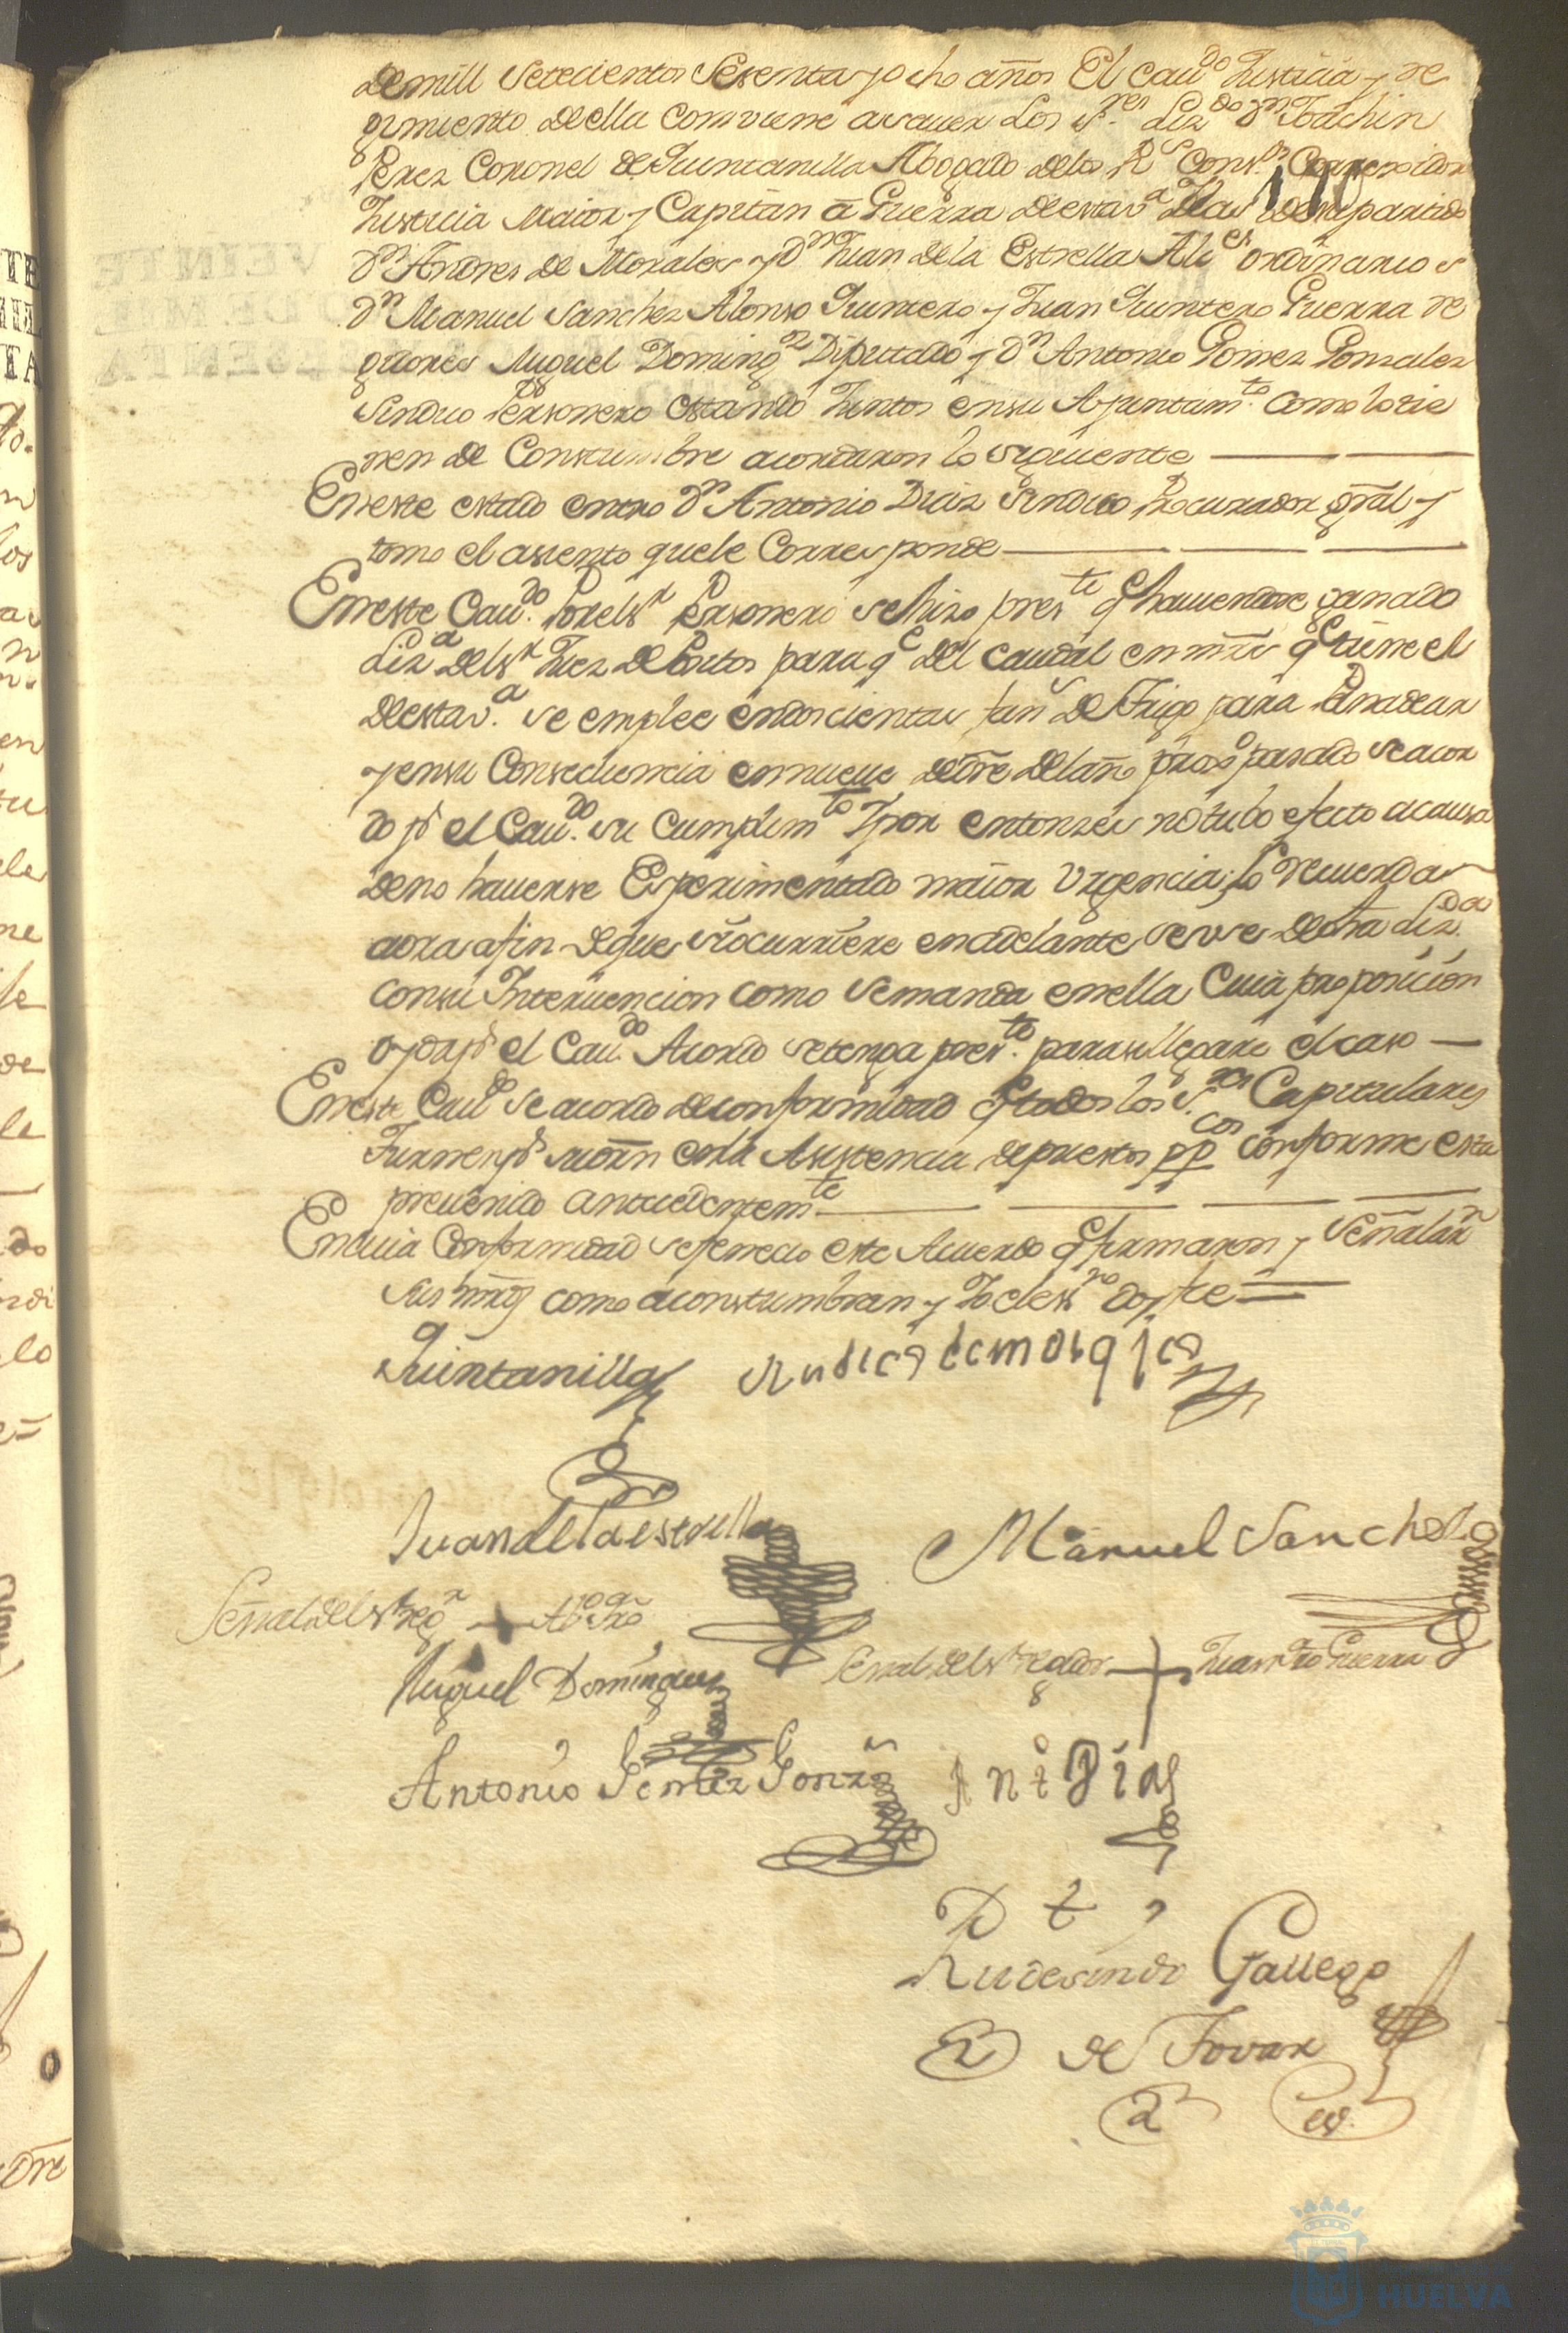 de mill Setecientos Sesenta y ocho años El Cau.do Justicia y Re
gimiento de ella Comviene a sauer Los S.res Liz.do Dn Joachin
Perez Coronel de Quintanilla Abogado de los Rs Cons.s Correxidor
Justicia Maior y Capitan â Guerra de esta v.a
Dn Andres de Morales y Dn Juan de la Estrella Alc.es ordinarios
Dn Manuel Sanchez Alonso Quintero y Juan Quintero Guerra Re
gidores Miguel Doming.z Diputado y Dn Antonio Gomez Gonzalez
Sindico Personero estando Juntos en su Ayuntam.to como lo tie
nen de Constumbre acordaron lo siguiente
En este estado entro Dn Antonio Diaz Sindico Procurador Gral y
tomo el asiento que le Corresponde
En este Cau.do Por el Sr Personero se hizo pres.te q.e hauiendose ganado
Liz.a del Sr Juez de Positos para q.e del caudal en mrs q.e tiene el
de esta v.a se emplee en doscientas fans de Trigo para Panadear
y en su Consecuencia en nueue de Dre del año proxo pasado se acor
do pr el Cau.do su Cumplim.to Y por entonzes no tubo efecto a causa
de no hauerse Esperimentado maior Urgencia; lo recuerda
aora a fin de que si ocurriere en adelante se use de dha Liz.a
con su Interuencion como se manda en ella Cuia proposicion
oyda pr el Cau.do Acordo se tenga pres.te para si llegare el caso
En este Cau.do Se acordo de conformidad q.e todos los S.res Capitulares
Turnen pr su orn en la Asistencia de puestos pp.cos conforme esta
preuenido antecedentem.te
En cuia Conformidad se fenecio este Acuerdo q.e firmaron y Señalarn
Sus mrds como aconstumbran y Yo el es.no doy fe
Quintanilla
Juan de la estrella
Manuel Sanchez
Señal del Sr Reg.r + Alo Qro
Miguel Dominguez
Señal del Sr Regidor + Juan Qro Guerra
Antonio Gomez Gonzs
Ant Dias
Rudesindo Gallego
de Tovar
HUELVA